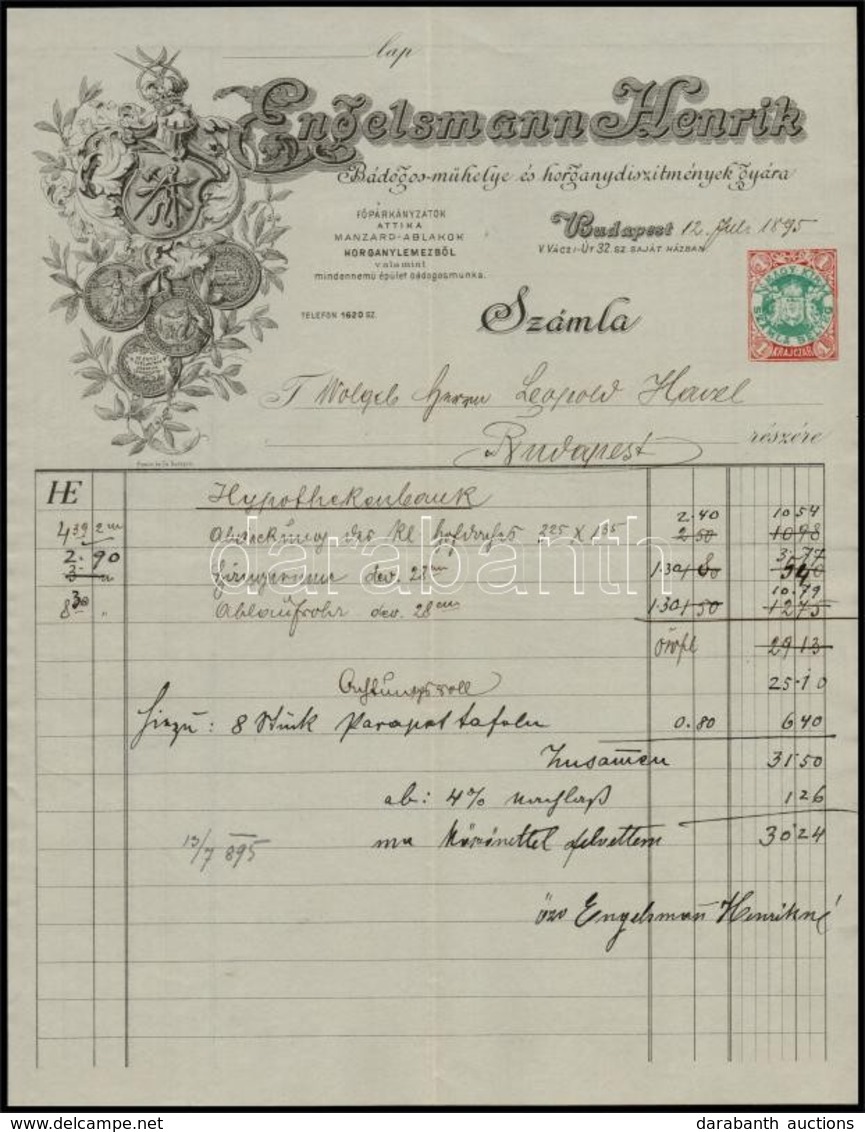 lap
Engelsmann Henrik
Bádogos-műhelye és horganydiszitmények gyára
FŐPÁRKÁNYZATOK
ATTIKA
MANZARD-ABLAKOK
HORGANYLEMEZBŐL
valamint
mindennemü épület bádogosmunka.
TELEFON 1620 SZ.
Budapest 12. Juli 1895
V. VÁCZI-ÚT 32. SZ. SAJÁT HÁZBAN
Számla
MAGY. KIR.
SZÁMLA BÉLYEG
1 KRAJCZÁR 1
Herrn Leopold Havel
Budapest részére
HE
Hypothekenbank
4.39 2m Abdeckung des kl. hofdaches 225 x 1.95 2.40 2 50 10 54 10 98
2.90 3 " dev. 28 cm 1.30 3.77
8.30 " Ablaufrohr dev. 28 cm 1.30 1 50 10.79 12 75
öwfl 29 13
Achtungsvoll 25.10
hiezu: 8 Stück Parapettafeln 0.80 6 40
Zusam̄en 31.50
ab: 4% Nachlaß 1 26
13/7 895 Köszönettel felvettem 30.24
özv Engelsman̄ Henrikné
darabanth
www.darabanth.com darabanth auctions